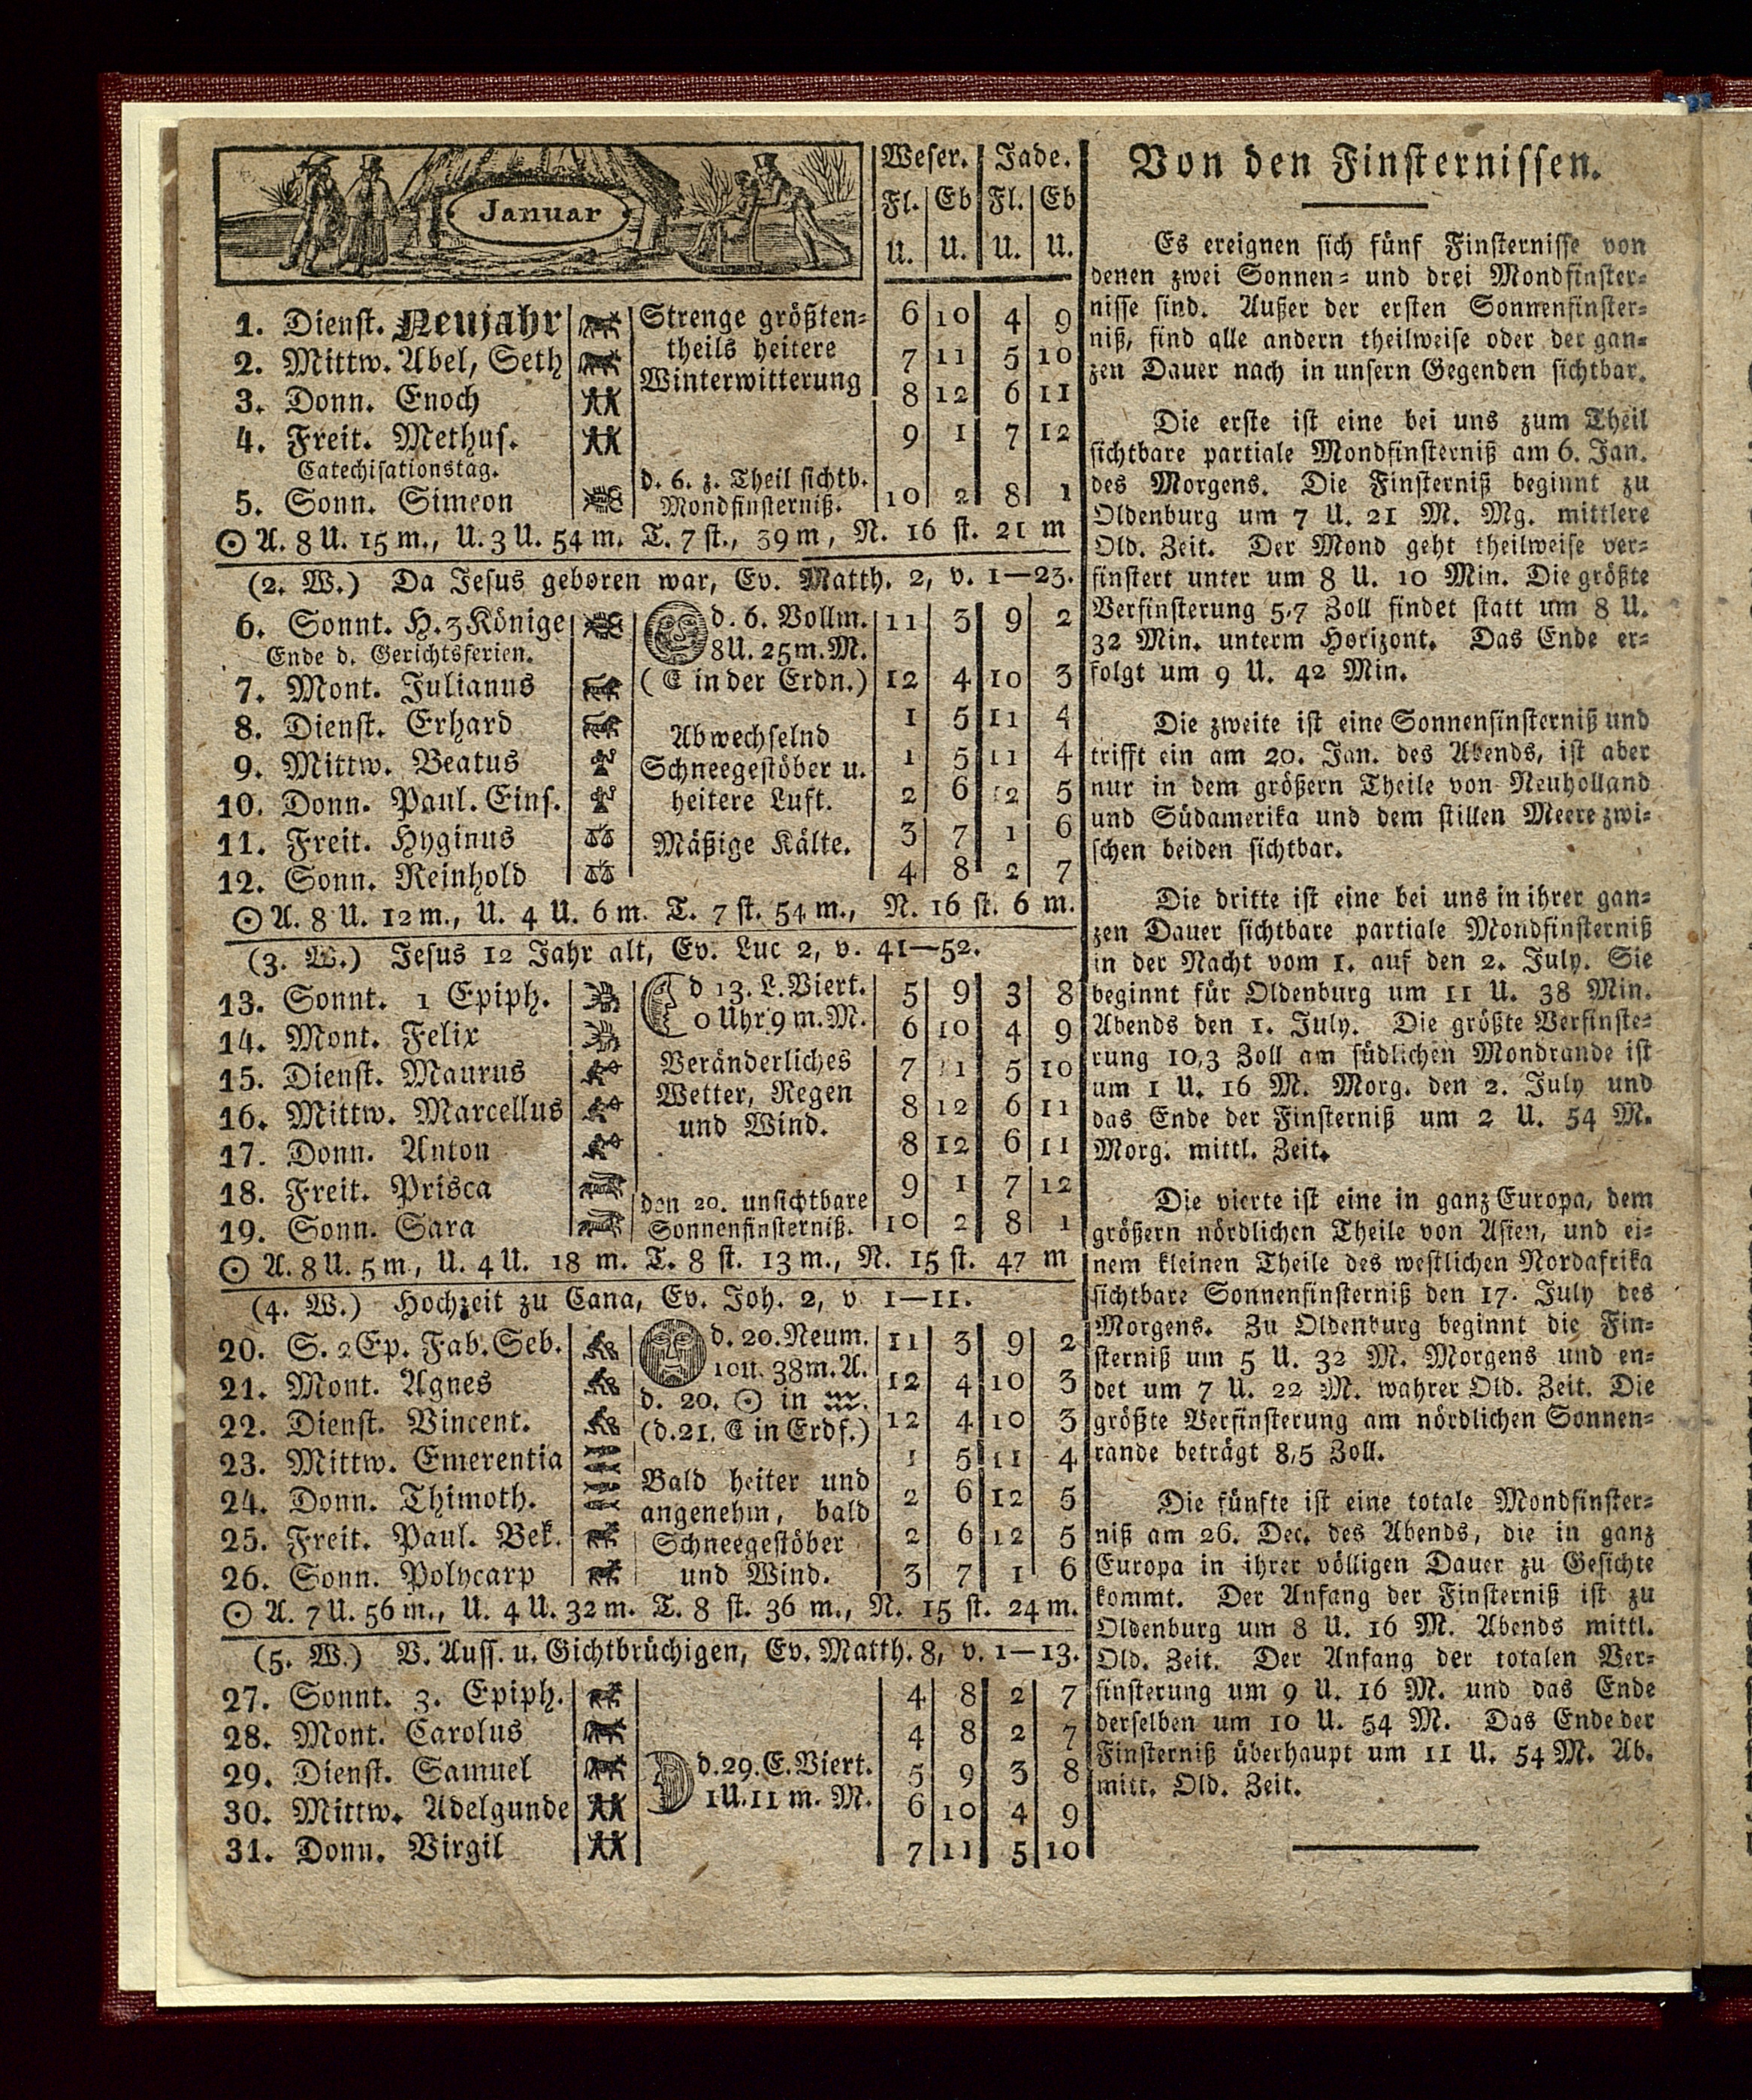 Januar
Weser. Jade.
Fl. Eb Fl. Eb
U. U. U. U.
1. Dienst. Neujahr Strenge größten= 6 10 4 9
2. Mittw. Abel, Seth theils heitere 7 11 5 10
3. Donn. Enoch Winterwitterung 8 12 6 11
4. Freit. Methus. 9 1 7 12
Catechisationstag. d. 6. z. Theil sichtb.
5. Sonn. Simeon Mondfinsterniß. 10 2 8 1
☉ A. 8 U. 15 m., U. 3 U. 54 m. T. 7 st., 39 m, N. 16 st. 21 m
(2. W.) Da Jesus geboren war, Ev. Matth. 2, v. 1—23.
6. Sonnt. H. 3 Könige d. 6. Vollm. 11 3 9 2
Ende d. Gerichtsferien. 8 U. 25 m. M.
7. Mont. Julianus (☾ in der Erdn.) 12 4 10 3
8. Dienst. Erhard Abwechselnd 1 5 11 4
9. Mittw. Beatus Schneegestöber u. 1 5 11 4
10. Donn. Paul. Eins. heitere Luft. 2 6 12 5
11. Freit. Hyginus Mäßige Kälte. 3 7 1 6
12. Sonn. Reinhold 4 8 2 7
☉ A. 8 U. 12 m., U. 4 U. 6 m. T. 7 st. 54 m., N. 16 st. 6 m.
(3. W.) Jesus 12 Jahr alt, Ev. Luc 2, v. 41—52.
13. Sonnt. 1 Epiph. d 13. L. Viert. 5 9 3 8
14. Mont. Felix 0 Uhr 9 m. M. 6 10 4 9
15. Dienst. Maurus Veränderliches 7 11 5 10
16. Mittw. Marcellus Wetter, Regen 8 12 6 11
17. Donn. Anton und Wind. 8 12 6 11
18. Freit. Prisca den 20. unsichtbare 9 1 7 12
19. Sonn. Sara Sonnenfinsterniß. 10 2 8 1
☉ A. 8 U. 5 m., U. 4 U. 18 m. T. 8 st. 13 m., N. 15 st. 47 m
(4. W.) Hochzeit zu Cana, Ev. Joh. 2, v 1—11.
20. S. 2 Ep. Fab. Seb. d. 20. Neum. 11 3 9 2
10 U. 38 m. A.
21. Mont. Agnes d. 20. ☉ in ♒. 12 4 10 3
22. Dienst. Vincent. (d. 21. ☾ in Erdf.) 12 4 10 3
23. Mittw. Emerentia Bald heiter und 1 5 11 4
24. Donn. Thimoth. angenehm, bald 2 6 12 5
25. Freit. Paul. Bek. Schneegestöber 2 6 12 5
26. Sonn. Polycarp und Wind. 3 7 1 6
☉ A. 7 U. 56 m., U. 4 U. 32 m. T. 8 st. 36 m., N. 15 st. 24 m.
(5. W.) V. Auss. u. Gichtbrüchigen, Ev. Matth. 8, v. 1—13.
27. Sonnt. 3. Epiph. 4 8 2 7
28. Mont. Carolus 4 8 2 7
29. Dienst. Samuel d. 29. E. Viert. 5 9 3 8
30. Mittw. Adelgunde 1 U. 11 m. M. 6 10 4 9
31. Donn. Virgil 7 11 5 10
Von den Finsternissen.
Es ereignen sich fünf Finsternisse von
denen zwei Sonnen= und drei Mondfinster=
nisse sind. Außer der ersten Sonnenfinster=
niß, sind alle andern theilweise oder der gan=
zen Dauer nach in unsern Gegenden sichtbar.
Die erste ist eine bei uns zum Theil
sichtbare partiale Mondfinsterniß am 6. Jan.
des Morgens. Die Finsterniß beginnt zu
Oldenburg um 7 U. 21 M. Mg. mittlere
Old. Zeit. Der Mond geht theilweise ver=
finstert unter um 8 U. 10 Min. Die größte
Verfinsterung 5,7 Zoll findet statt um 8 U.
32 Min. unterm Horizont. Das Ende er=
folgt um 9 U. 42 Min.
Die zweite ist eine Sonnenfinsterniß und
trifft ein am 20. Jan. des Abends, ist aber
nur in dem größern Theile von Neuholland
und Südamerika und dem stillen Meere zwi=
schen beiden sichtbar.
Die dritte ist eine bei uns in ihrer gan=
zen Dauer sichtbare partiale Mondfinsterniß
in der Nacht vom 1. auf den 2. July. Sie
beginnt für Oldenburg um 11 U. 38 Min.
Abends den 1. July. Die größte Verfinste=
rung 10,3 Zoll am südlichen Mondrande ist
um 1 U. 16 M. Morg. den 2. July und
das Ende der Finsterniß um 2 U. 54 M.
Morg. mittl. Zeit.
Die vierte ist eine in ganz Europa, dem
größern nördlichen Theile von Asien, und ei=
nem kleinen Theile des westlichen Nordafrika
sichtbare Sonnenfinsterniß den 17. July des
Morgens. Zu Oldenburg beginnt die Fin=
sterniß um 5 U. 32 M. Morgens und en=
det um 7 U. 22 M. wahrer Old. Zeit. Die
größte Verfinsterung am nördlichen Sonnen=
rande beträgt 8,5 Zoll.
Die fünfte ist eine totale Mondfinster=
niß am 26. Dec. des Abends, die in ganz
Europa in ihrer völligen Dauer zu Gesichte
kommt. Der Anfang der Finsterniß ist zu
Oldenburg um 8 U. 16 M. Abends mittl.
Old. Zeit. Der Anfang der totalen Ver=
finsterung um 9 U. 16 M. und das Ende
derselben um 10 U. 54 M. Das Ende der
Finsterniß überhaupt um 11 U. 54 M. Ab.
mitt. Old. Zeit.